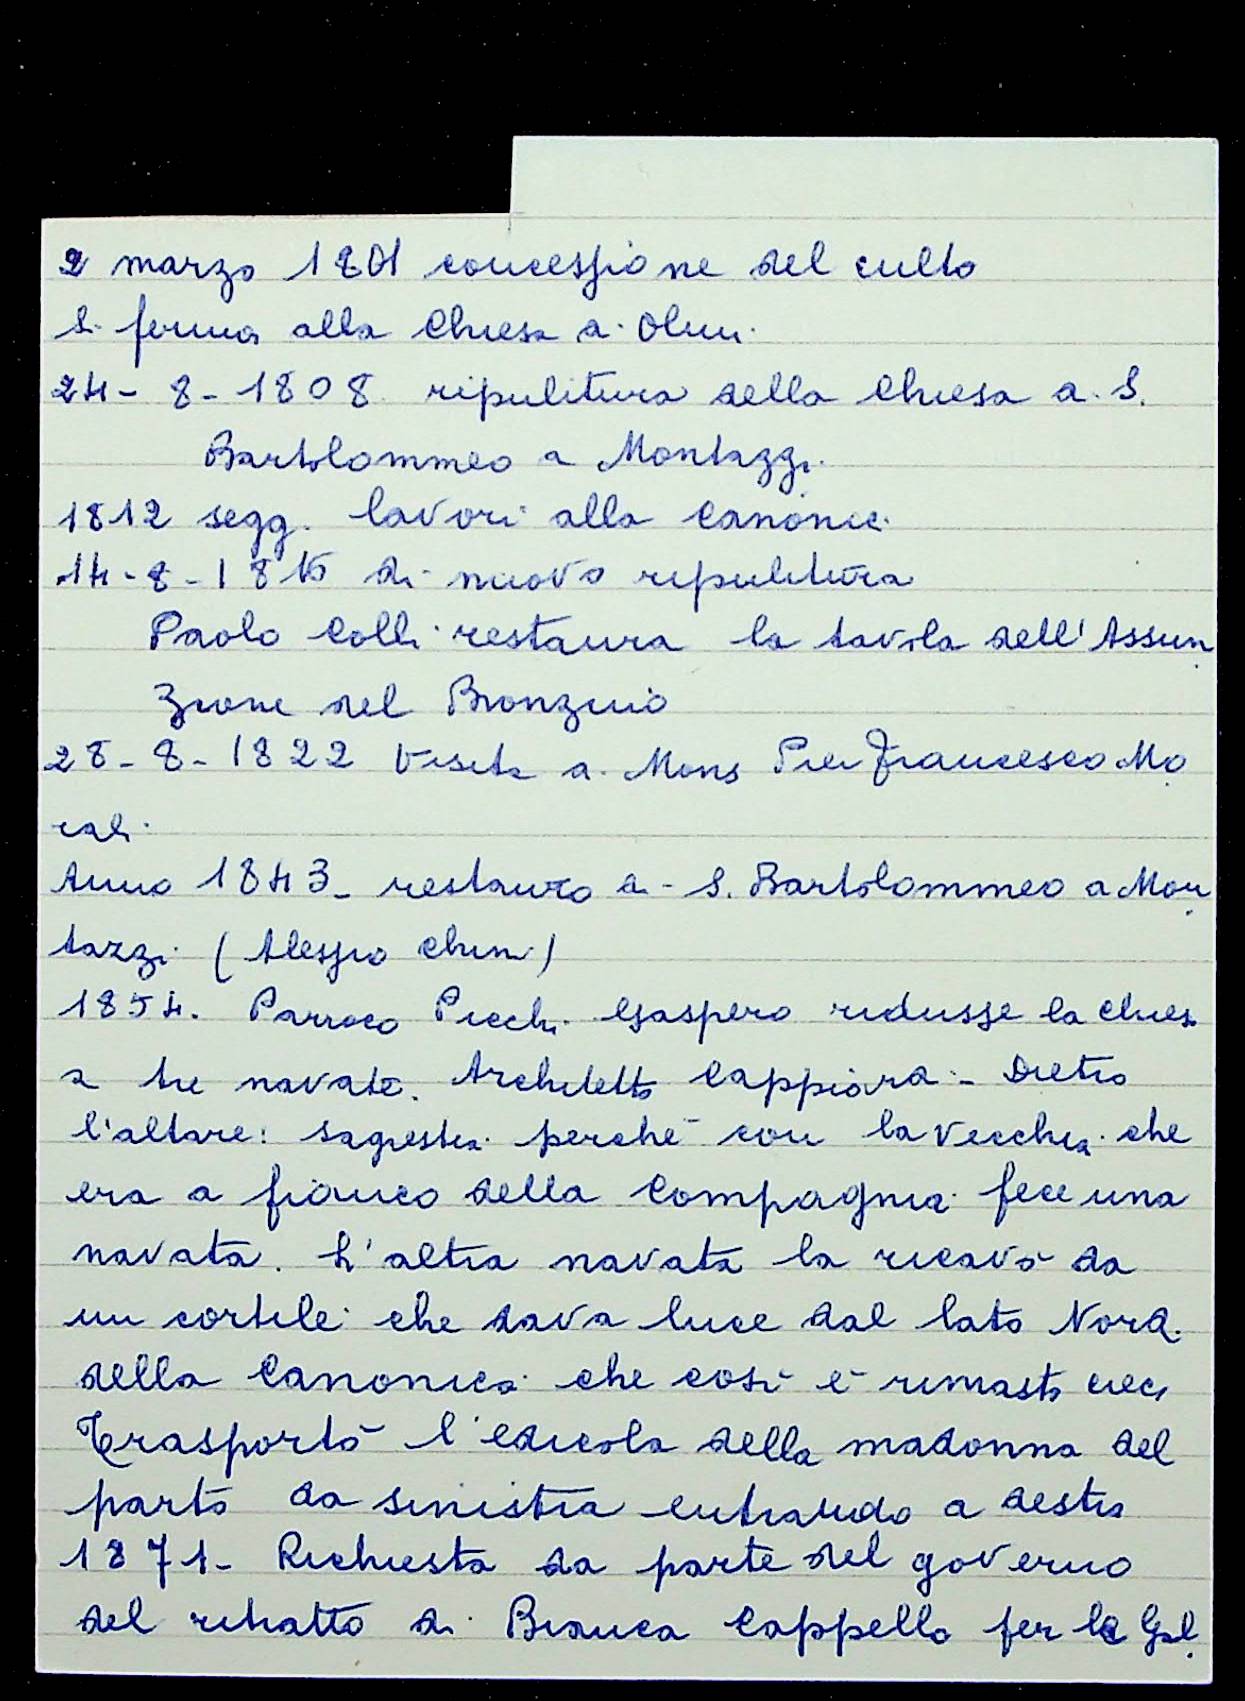 2 marzo 1801 concessione del culto
S. ferma alla Chiesa a. Olmi.
24-8-1808 ripulitura della Chiesa a. S.
Bartolommeo a Montazzi.
1812 segg. lavori alla canonic.
14-8-1815 di nuovo ripulitura
Paolo Colli restaura la tavola dell'Assun
zione del Bronzino
28-8-1822 Visita a. Mons Pier Francesco Mo
rali.
Anno 1843- restauro a- S. Bartolommeo a Mon
tazzi (Alessio Chini)
1854. Parroco Picchi Gaspero ridusse la chies
a tre navate. Architetto Cappiardi- Dietro
l'altare: sagrestia perchè con la vecchia che
era a fianco della Compagnia fece una
navata. L'altra navata la ricavò da
un cortile che dava luce dal lato Nord.
della Canonica che così è rimasta ciec
Trasportò l'edicola della madonna del
parto da sinistra entrando a destra
1871- Richiesta da parte del governo
del ritratto di Bianca Cappello per la Gal.